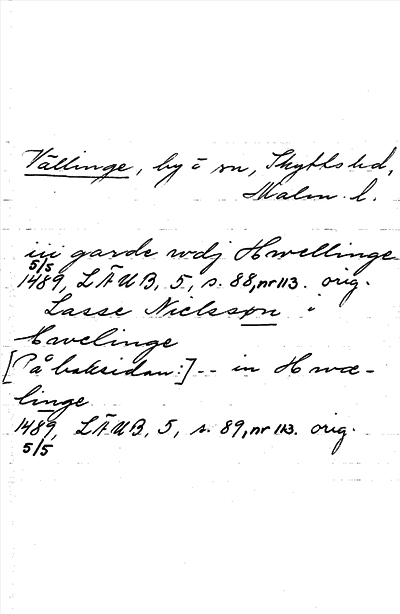 Vällinge, by i sn, Skytts hd,
Malm. l.
iii garde wdj Hwellinge
5/5
1489, LÄUB, 5, s. 88, nr 113. orig.
Lasse Nielsson i
Hwelinge
[På baksidan:] -- in Hwæ-
linge
1489, LÄUB, 5, s. 89, nr 113. orig.
5/5